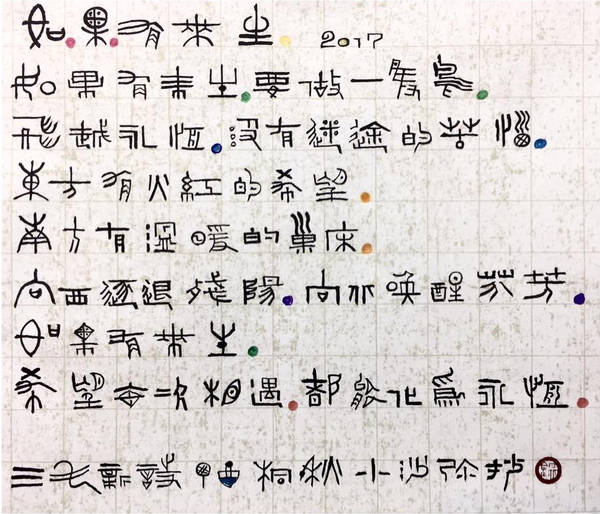 如果有來生 2017
如果有來生。要做一隻鳥。
飛越永恆。沒有迷途的苦惱。
東方有火紅的希望。
南方有溫暖的巢床。
向西逐退殘陽。向北喚醒芬芳。
如果有來生。
希望每次相遇。都能化為永恆。
三毛新詩 桐秋小沙弥抄